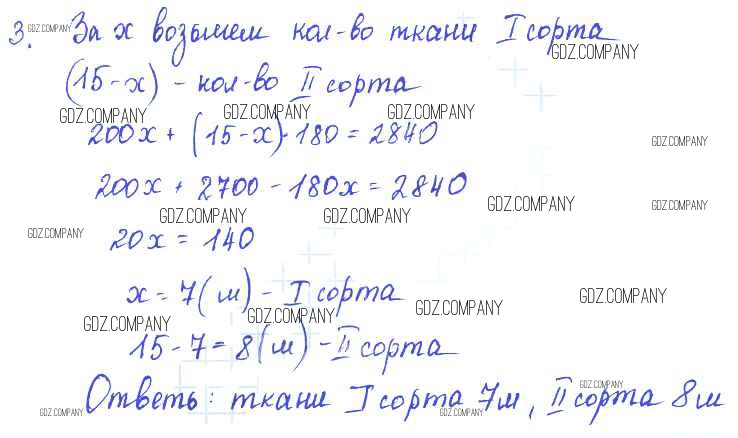 3. За x возьмем кол-во ткани I сорта
GDZ.COMPANY GDZ.COMPANY
(15-x) - кол-во II сорта
GDZ.COMPANY GDZ.COMPANY GDZ.COMPANY
200x + (15-x)·180 = 2840
GDZ.COMPANY
200x + 2700 - 180x = 2840
GDZ.COMPANY GDZ.COMPANY GDZ.COMPANY GDZ.COMPANY
GDZ.COMPANY
20x = 140
x = 7(м) - I сорта
GDZ.COMPANY GDZ.COMPANY GDZ.COMPANY GDZ.COMPANY
15-7=8(м) - II сорта
Ответь: ткани I сорта 7м, II сорта 8м
GDZ.COMPANY GDZ.COMPANY GDZ.COMPANY